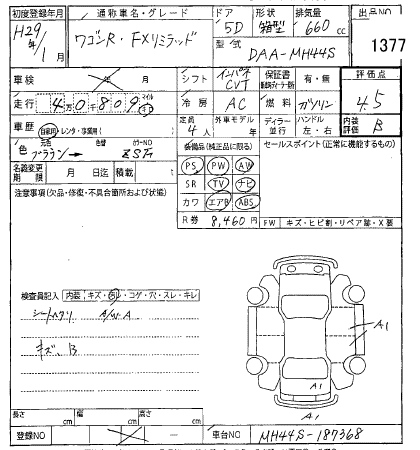 初度登録年月 通称車名・グレード ドア 形状 排気量 出品NO
H29年/1 ワゴンR・FXリミテッド 5D 箱型 660cc 1377
型式 DAA-MH44S
車検 年 月 シフト インパネCVT 保証書 有・無 評価点
走行 4万0千809 マイル km 冷房 AC 燃料 ガソリン 4.5
車歴 自家用・レンタ・事業用( ) 定員 4人 外車モデル 年 ディーラー・並行 ハンドル 左・右 内装評価 B
色 元色 ブラウン→ 色替 カラーNO ZSFA 装備品(純正品に限る) セールスポイント(正常に機能するもの)
名義変更期限 月 日迄 積載 PS PW AW
注意事項(欠品・修復・不具合箇所および状態) SR TV ナビ
カワ エアB ABS
R券 8,460円 FW キズ・ヒビ割・リペア跡・X要
検査員記入 内装:キズ・汚・コゲ・穴・スレ・キレ
A/W A
キズ、B
A1
A1
A1
長さ cm 幅 cm 高さ cm
登録NO 車台NO MH44S-187368